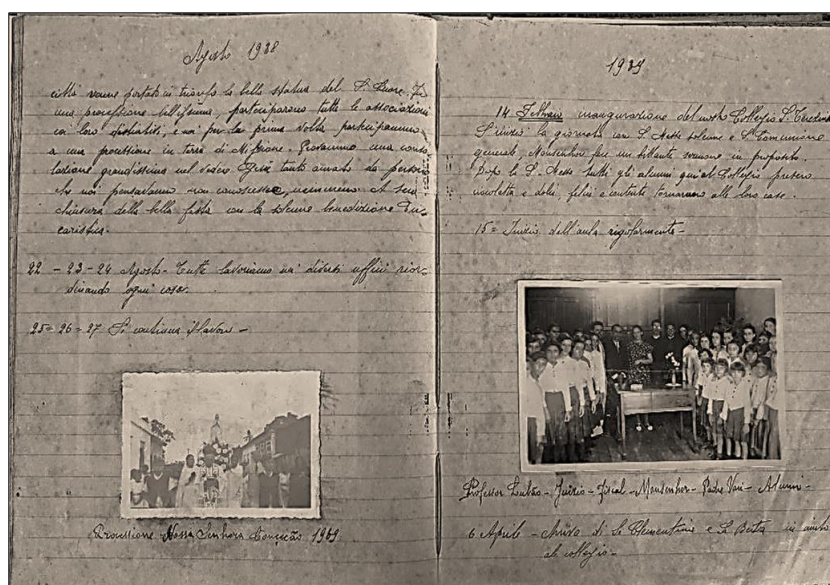 Agosto 1938
città venne portato in trionfo la bella statua del S. Cuore. Fu
una processione bellissima, parteciparono tutte le associazioni
coi loro distintivi, e noi per la prima volta partecipammo
a una processione in terra di Missione. Provammo una conso
lazione grandissima nel vedere Gesù tanto amato da persone
che noi pensavamo non conoscesse, nemmeno. A sera
chiusura della bella festa con la solenne benedizione Eu-
caristica.
22 - 23 - 24 Agosto - Tutte lavoriamo nei diversi uffici rior-
dinando ogni cosa.
25 = 26 = 27 Si continua il lavoro -
Processione Nossa Senhora Conceição 1939
1939
14 Febbraio inaugurazione del nostro Collegio S.
S'iniziò la giornata con S. Messa solenne e S. Comunione
generale, Monsenhor fece un brillante sermone in proposito.
Dopo la S. Messa tutti gli alunni qui al Collegio presero
e dolci, felici e contenti tornarono alle loro case.
15 = Inizio dell'aula regolarmente -
Professor - Juizio - Fiscal - Monsenhor - Padre - Alunni -
6 Aprile - Arrivo di Sr Clementina e Sr
al collegio -